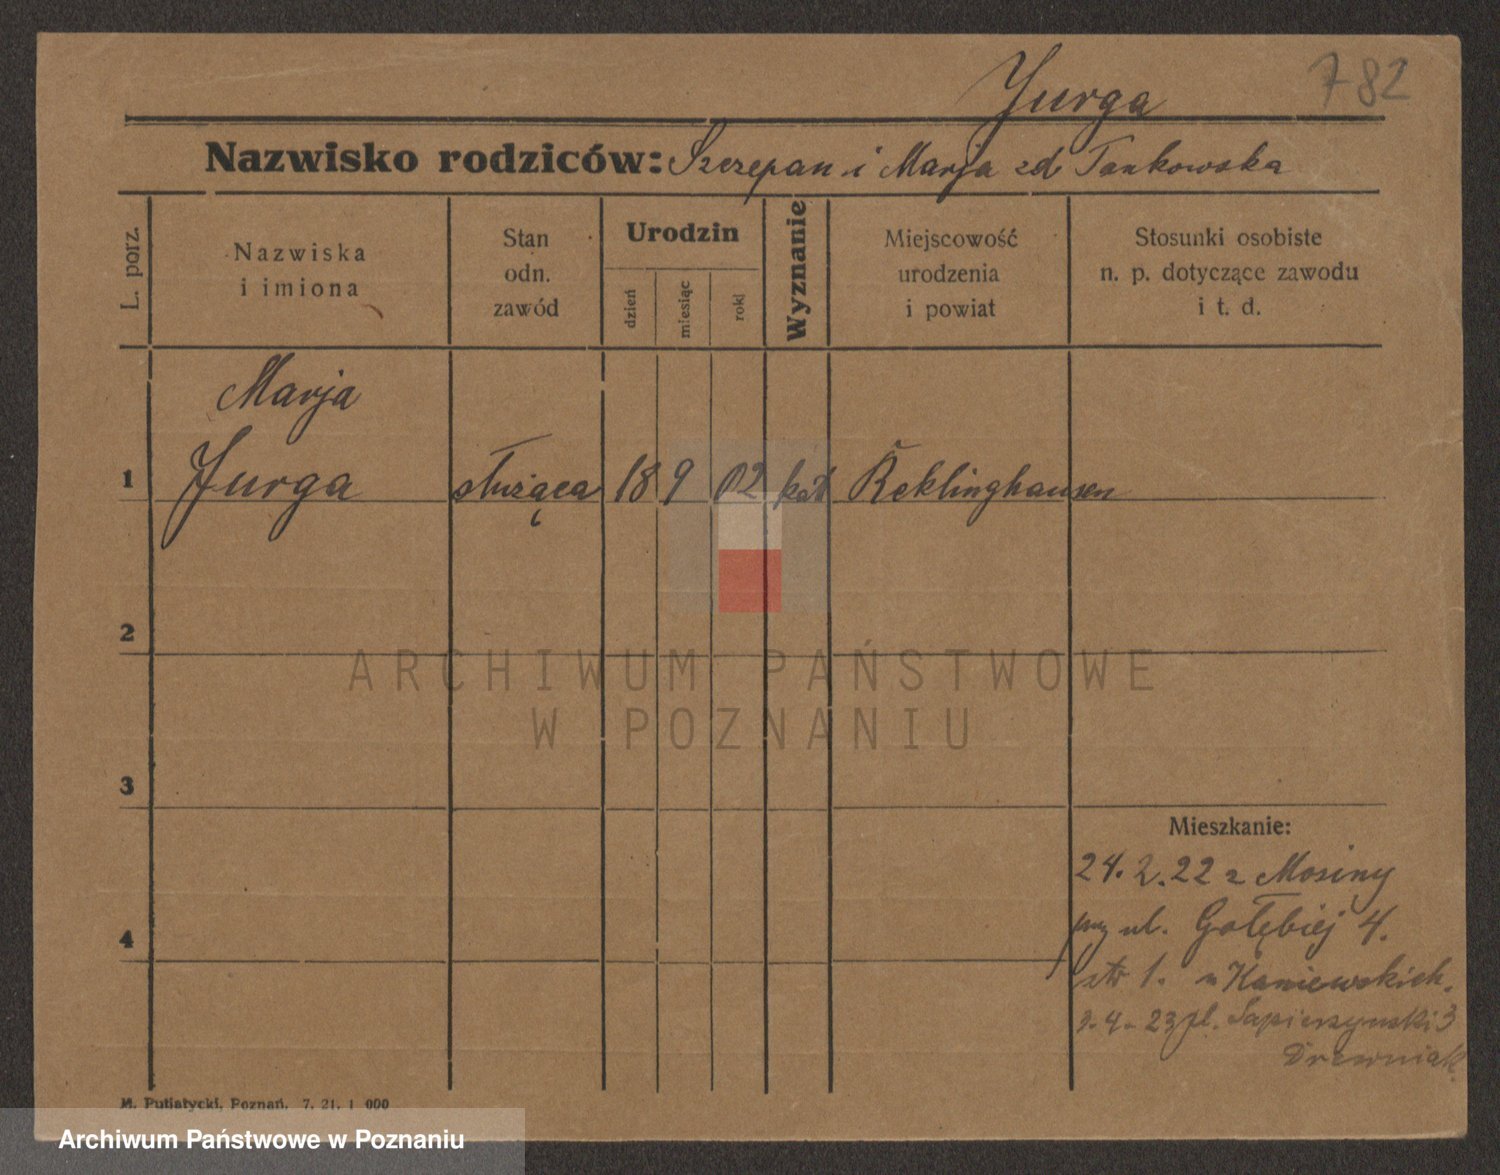 782
Jurga
Nazwisko rodziców: Szczepan i Marja zd Tankowska
L. porz.
Nazwiska
i imiona
Stan
odn.
zawód
Urodzin
dzień
miesiąc
rok
Wyznanie
Miejscowość
urodzenia
i powiat
Stosunki osobiste
n. p. dotyczące zawodu
i t. d.
Marja
1 Jurga służąca 18 9 02 kat Reklinghausen
2
3
4
Mieszkanie:
24.2.22 z Mosiny
przy ul. Gołębiej 4.
1. u Kaniewskich.
9.4.23 pl. Sapieszynski 3
Drewniak
M. Putiatycki, Poznań. 7. 21. 1 000
ARCHIWUM PAŃSTWOWE
W POZNANIU
Archiwum Państwowe w Poznaniu